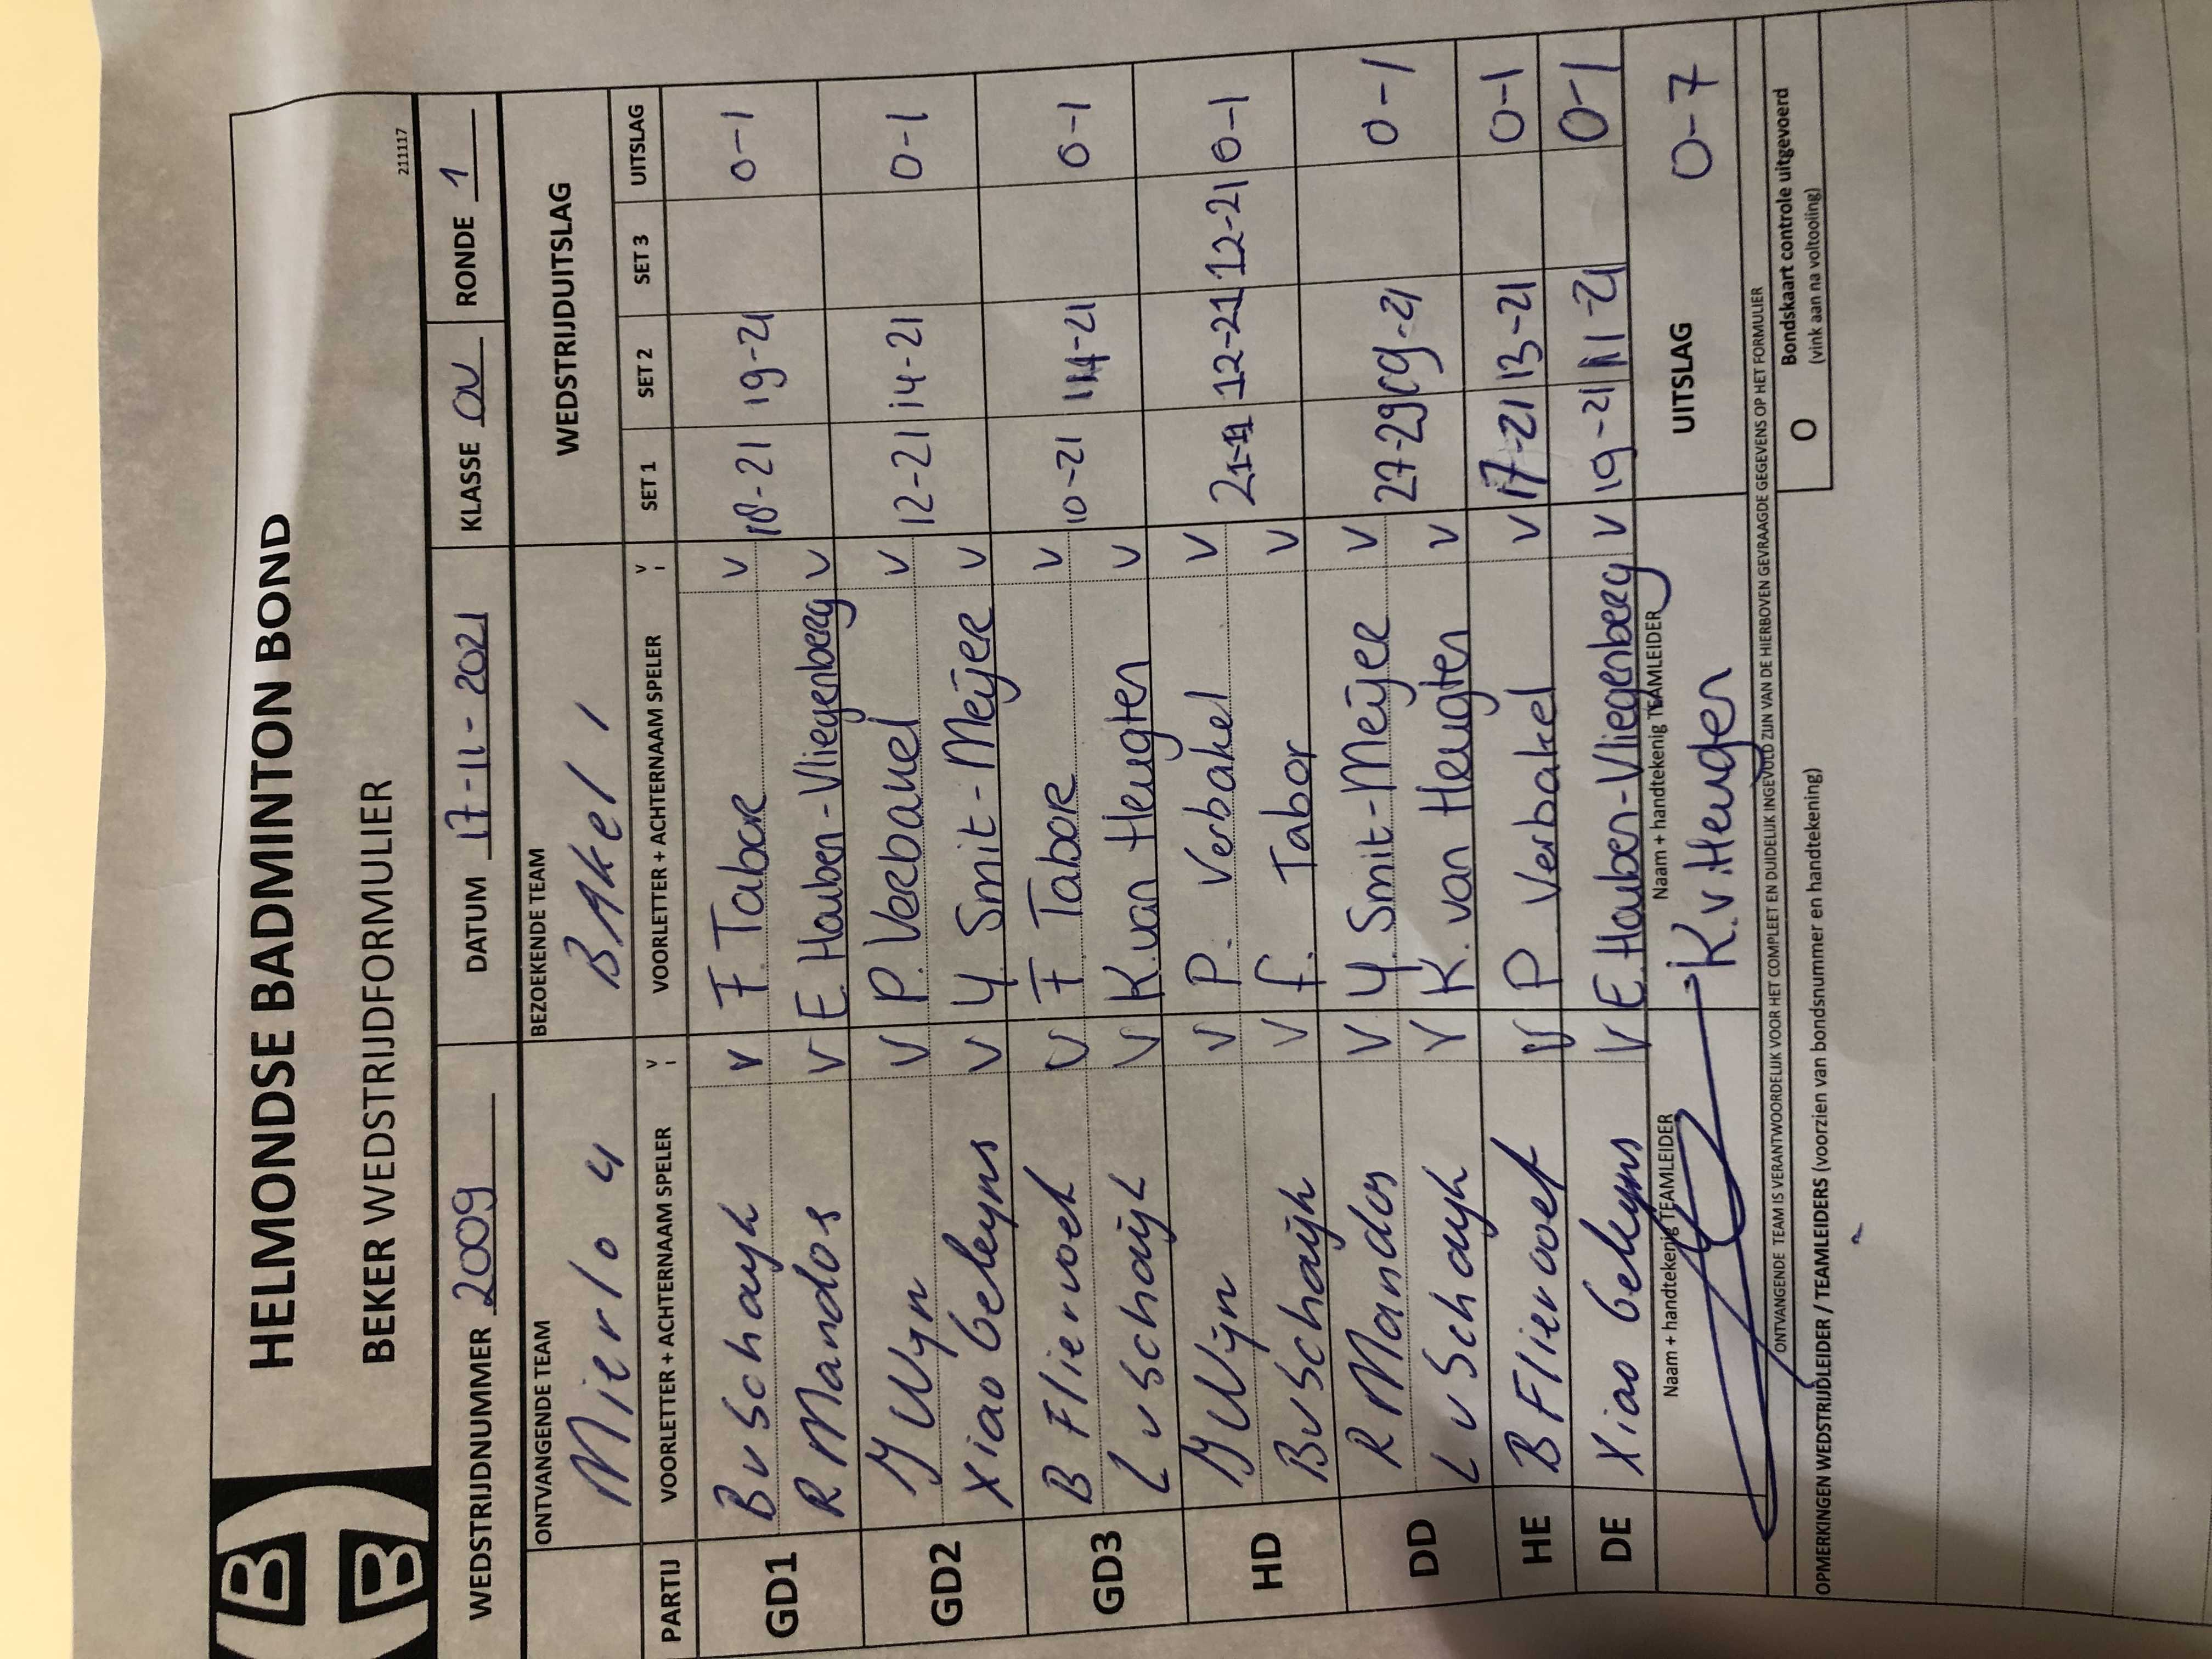 HELMONDSE BADMINTON BOND
BEKER WEDSTRIJDFORMULIER
211117
WEDSTRIJDNUMMER 2009 DATUM 17-11-2021 KLASSE OV RONDE 1
ONTVANGENDE TEAM BEZOEKENDE TEAM WEDSTRIJDUITSLAG
Mierlo 4 BAkel 1
PARTIJ VOORLETTER + ACHTERNAAM SPELER V VOORLETTER + ACHTERNAAM SPELER V SET 1 SET 2 SET 3 UITSLAG
GD1 B v Schayk V F. Tabor V 18-21 19-21 0-1
R Mandos V E. Houben-Vliegenberg V
GD2 Wyn V P. Verbakel V 12-21 14-21 0-1
Xiao Geleyns V Y Smit-Meijer V
GD3 B Fliervoet V F Tabor V 10-21 14-21 0-1
L v Schaijk V K. van Heugten V
HD Wijn V P. Verbakel V 21- 12-21 12-21 0-1
B v Schaijk V F. Tabor V
DD R Mandos V Y. Smit-Meijer V 27-29 19-21 0-1
L v Schayk V K. van Heugten V
HE B Fliervoet V P Verbakel V 17-21 13-21 0-1
DE Xiao Geleyns V E. Houben-Vliegenberg V 19-21 11-21 0-1
Naam + handtekenig TEAMLEIDER Naam + handtekenig TEAMLEIDER UITSLAG 0-7
K. v. Heugten
ONTVANGENDE TEAM IS VERANTWOORDELIJK VOOR HET COMPLEET EN DUIDELIJK INGEVULD ZIJN VAN DE HIERBOVEN GEVRAAGDE GEGEVENS OP HET FORMULIER
O Bondskaart controle uitgevoerd
(vink aan na voltooiing)
OPMERKINGEN WEDSTRIJDLEIDER / TEAMLEIDERS (voorzien van bondsnummer en handtekening)